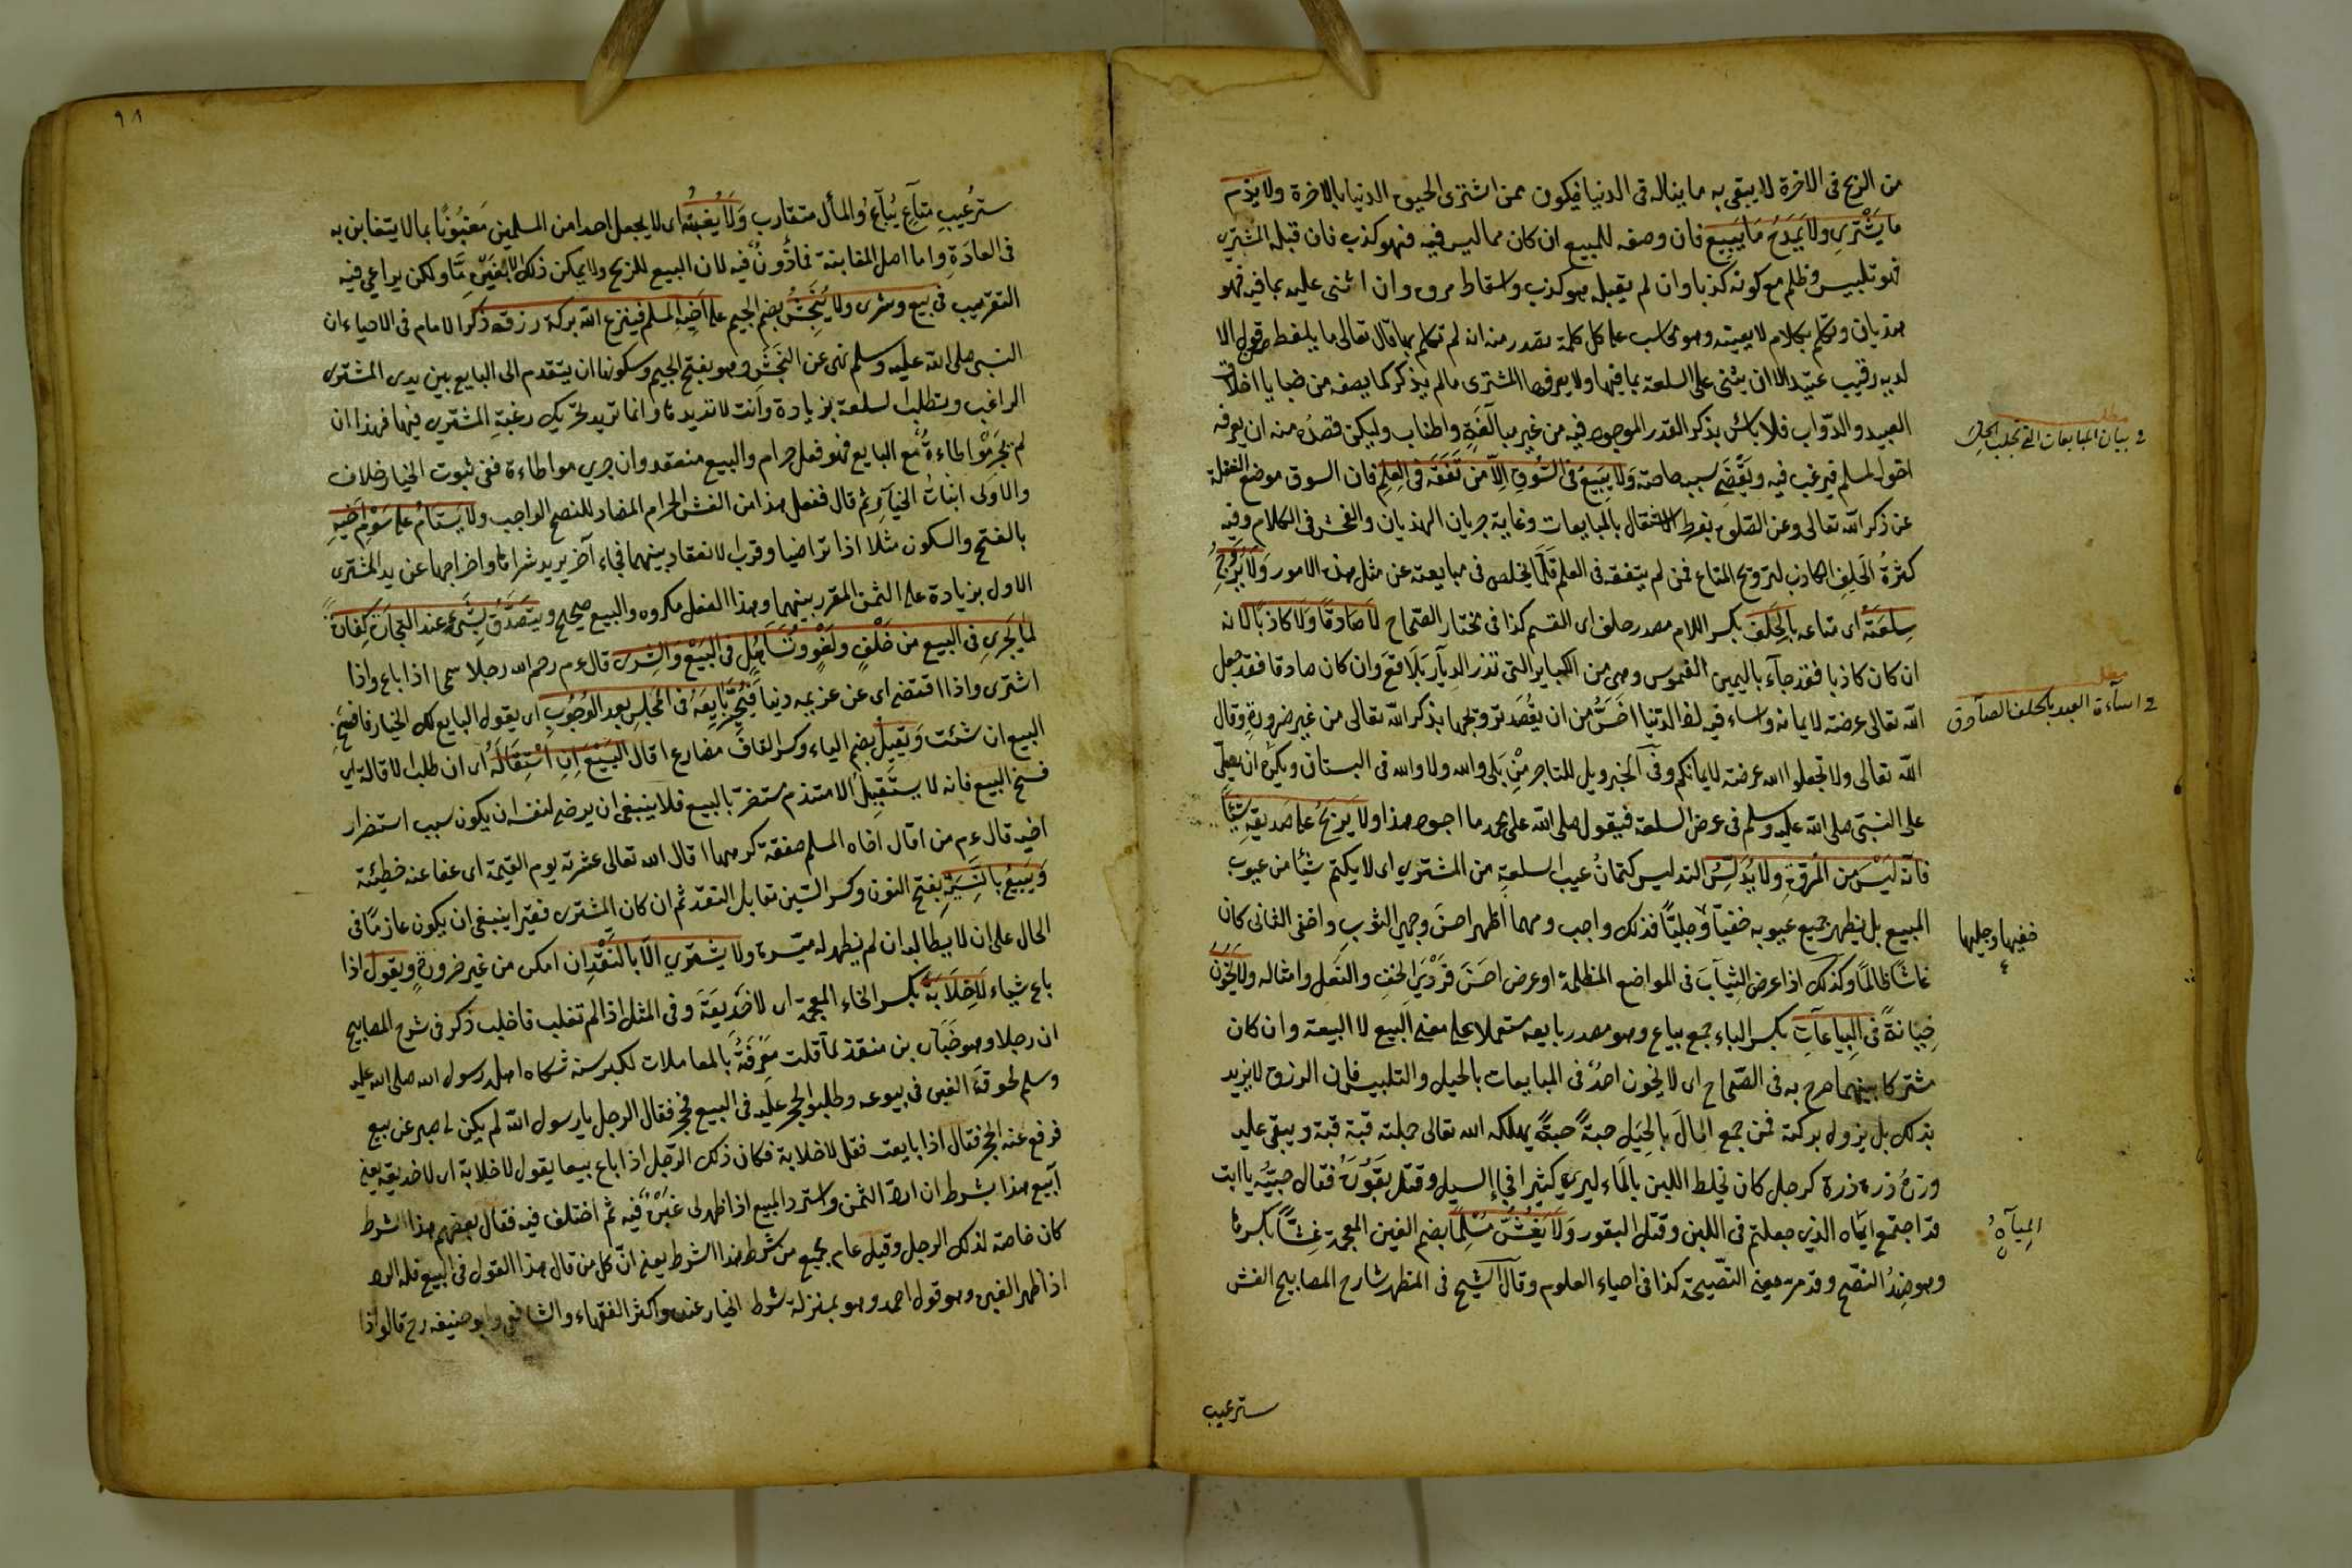 من الربح فى الاخرة لا يبقى به ما يناله فى الدنيا فيكون ممن اشترى الحيوة الدنيا بالاخرة ولا يذم
ما يشترى ولا يمدح ما يبيع فان وصفه للمبيع ان كان مما ليس فيه فهو كذب فان قبله المشترى
فهو تلبيس وظلم مع كونه كذبا وان لم يقبله فهو كذب واسقاط مروة وان اثنى عليه بما فيه فهو
هذيان وتكلم بكلام لا يعينه وهو محاسب على كل كلمة تصدر منه انه لم تكلم بها قال تعالى ما يلفظ من قول الا
لديه رقيب عتيد الا ان يثنى على السلعة بما فيها ولا يعرفها المشترى مالم يذكر كما يصفه من خفايا اخلاق
العبيد والدواب فلا بأس بذكر القدر الموجود فيه من غير مبالغة واطناب وليكن قصده منه ان يعرفه
اخوه المسلم فيرغب فيه ويقضى بسببه حاجته ولا يبيع فى السوق الا من تفقه فى العلم فان السوق موضع الغفلة
عن ذكر الله تعالى وعن الصلوة بفرط الاشتغال بالمبايعات وغاية جريان الهذيان والفحش فى الكلام وفيه
كثرة الحلف الكاذب لترويج المتاع فمن لم يتفقه فى العلم قلما يخلص فى مبايعته عن مثل هذه الامور ولا يروج
سلعته اى متاعه بالحلف بكسر اللام مصدر حلف اى القسم كذا فى مختار الصحاح لا صادقا ولا كاذبا لانه
ان كان كاذبا فقد جاء باليمين الغموس وهى من الكبائر التى تذر الديار بلاقع وان كان صادقا فقد جعل
الله تعالى عرضة لايمانه واساء فيه اذ الدنيا اخس من ان يقصد ترويجها بذكر الله تعالى من غير ضرورة وقال
الله تعالى ولا تجعلوا الله عرضة لايمانكم وفى الخبر ويل للتاجر من بلى والله ولا والله فى البستان ويكره ان يصلى
على النبى صلى الله عليه وسلم فى عرض السلعة فيقول صلى الله على محمد ما اجود هذا ولا يربح على صديقه شيئا
فانه ليس من المروة ولا يدلس التدليس كتمان عيب السلعة من المشترى اى لا يكتم شيئا من عيوب
المبيع بل يظهر جميع عيوبه خفيا وجليا فذلك واجب ومهما اظهر احسن وجهى الثوب واخفى الثانى كان
غاشا ظالما وكذلك اذا عرض الثياب فى المواضع المظلمة او عرض احسن فردى الخف والنعل وامثاله ولا يخون
خيانة فى البياعات بكسر الباء جمع بياع وهو مصدر بايعه مستعملا على معنى البيع لا البيعة وان كان
مشتركا بينهما صرح به فى الصحاح اى لا يخون احد فى المبايعات بالحيل والتلبيس فان الرزق لا يزيد
بذلك بل يزول بركته فمن جمع المال بالحيل حبة حبة يهلكه الله تعالى جملة قبة قبة ويبقى عليه
وزره ذرة ذرة كرجل كان يخلط اللبن بالماء ليرى كثيرا فجاء السيل وقتل بقوره فقال صبيه يا ابت
قد اجتمع المياه الذى جعلتم فى اللبن وقتل البقور ولا يغش مسلما بضم الغين المعجمة غشا بكسرها
وهو ضد النصح وقد مر معنى النصيحة كذا فى احياء العلوم وقال الشيخ فى المظهر شارح المصابيح الغش
سترعيب
مطلب
فى بيان المبايعات التى تجلب الحلال
مطلب
فى اساءة العبد بالحلف الصادق
خفيها وجليها
المياه
٩٨
ستر عيب متاع يباع والمأل متقارب ولا يغبنه اى لا يجعل احدا من المسلمين مغبونا بما لا يتغابن به
فى العادة واما اصل المغابنة فماذون فيه لان البيع للربح ولا يمكن ذلك الا بغبن ما ولكن يراعى فيه
التقريب فى بيع وشرى ولا ينجش بضم الجيم على اخيه المسلم فينزع الله بركة رزقه ذكر الامام فى الاحياء ان
النبى صلى الله عليه وسلم نهى عن النجش وهو بفتح الجيم وسكونها ان يتقدم الى البايع بين يدى المشترى
الراغب ويطلب السلعة بزيادة وانت لا تريدها وانما تريد تحريك رغبة المشترى فيها فهذا ان
لم تجر مواطاءة مع البايع فهو فعل حرام والبيع منعقد وان جرى مواطاءة ففى ثبوت الخيار خلاف
والاولى اثبات الخيار ثم قال ففعل هذا من الغش الحرام المضاد للنصح الواجب ولا يستام على سوم اخيه
بالفتح والسكون مثلا اذا تراضيا وقرب الانعقاد بينهما فجاء آخر يريد شراءها واخراجها عن يد المشترى
الاول بزيادة على الثمن المقرر بينهما وهذا الفعل مكروه والبيع صحيح ويتصدق بشىء عند التجارة كفارة
لما يجرى فى البيع من حلف ولغو وتساهل فى البيع والشرى قال ءم رحم الله رجلا سمحا اذا باع واذا
اشترى واذا اقتضى اى عن غريمه دينا فيخير بايعه فى المجلس بعد الوجوب اى يقول البايع لك الخيار فافسخ
البيع ان شئت ويقيل بضم الياء وكسر القاف مضارع اقال البيع ان استقاله اى ان طلب الاقالة اى
فسخ البيع فانه لا يستقيل الا متندم مستضر بالبيع فلا ينبغى ان يرضى لنفسه ان يكون سبب استضرار
اخيه قال ءم من اقال اخاه المسلم صفقة كرهها اقال الله تعالى عثرته يوم القيمة اى عفا عنه خطيئته
ويبيع بالنسية بفتح النون وكسر السين مقابل النقد ثم ان كان المشترى فقيرا ينبغى ان يكون عازما فى
الحال على ان لا يطالبه ان لم يظهر له ميسرة ولا يشترى الا بالنقد ان امكن من غير ضرورة ويقول اذا
باع شياء لا خلابة بكسر الخاء المعجمة اى لا خديعة وفى المثل اذا لم تغلب فاخلب ذكر فى شرح المصابيح
ان رجلا وهو حبان بن منقذ لما قلت معرفته بالمعاملات لكبر سنه شكاه اهله رسول الله صلى الله عليه
وسلم لحوقة الغبن فى بيوعه وطلبوا الحجر عليه فى البيع فحجر فقال الرجل يا رسول الله لم يكن لى صبر عن بيع
فرفع عنه الحجر فقال اذا بايعت فقل لا خلابة فكان ذلك الرجل اذا باع بيعا يقول لا خلابة اى لا خديعة يعنى
ابيع هذا بشرط ان ارد الثمن واسترد المبيع اذا ظهر لى غبن فيه ثم اختلف فيه فقال بعضهم هذا الشرط
كان خاصة لذلك الرجل وقيل عام بجميع من شرط هذا الشرط يعنى ان كل من قال هذا القول فى البيع فله الرد
اذا ظهر الغبن وهو قول احمد وهو بمنزلة شرط الخيار عنده واكثر الفقهاء والشافعى وابو حنيفه رح قالوا اذا